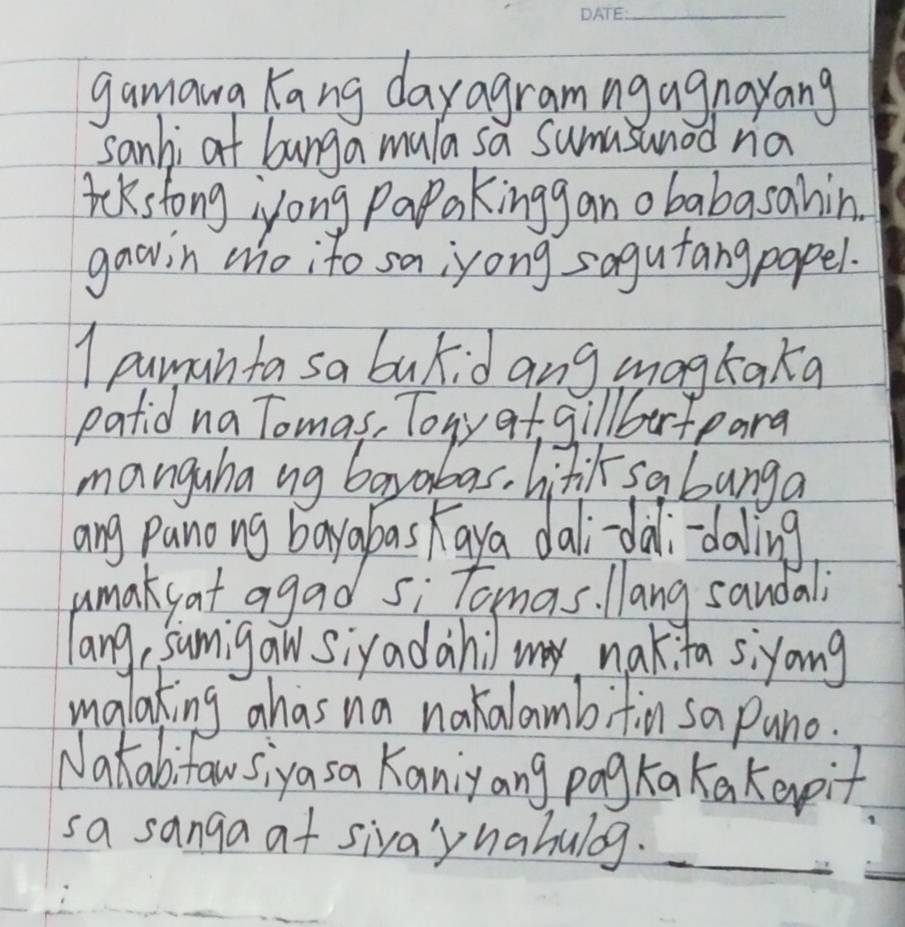 DATE:
gumawa Kang dayagram ng ugnayang
sanhi at bunga mula sa sumusunod na
tekstong iyong papakinggan o babasahin.
gawin mo ito sa iyong sagutang papel.
1 pumunta sa bukid ang magkaka
patid na Tomas, Tony at gillbert para
manguha ng bayabas. hitik sa bunga
ang puno ng bayabas Kaya dali-dali-daling
umakyat agad si Tomas. Ilang sandali
lang, sumigaw siya dahil may nakita siyang
malaking ahas na nakalambitin sa puno.
Nakabitaw siya sa Kaniyang pagkakakapit
sa sanga at siya'y nahulog.